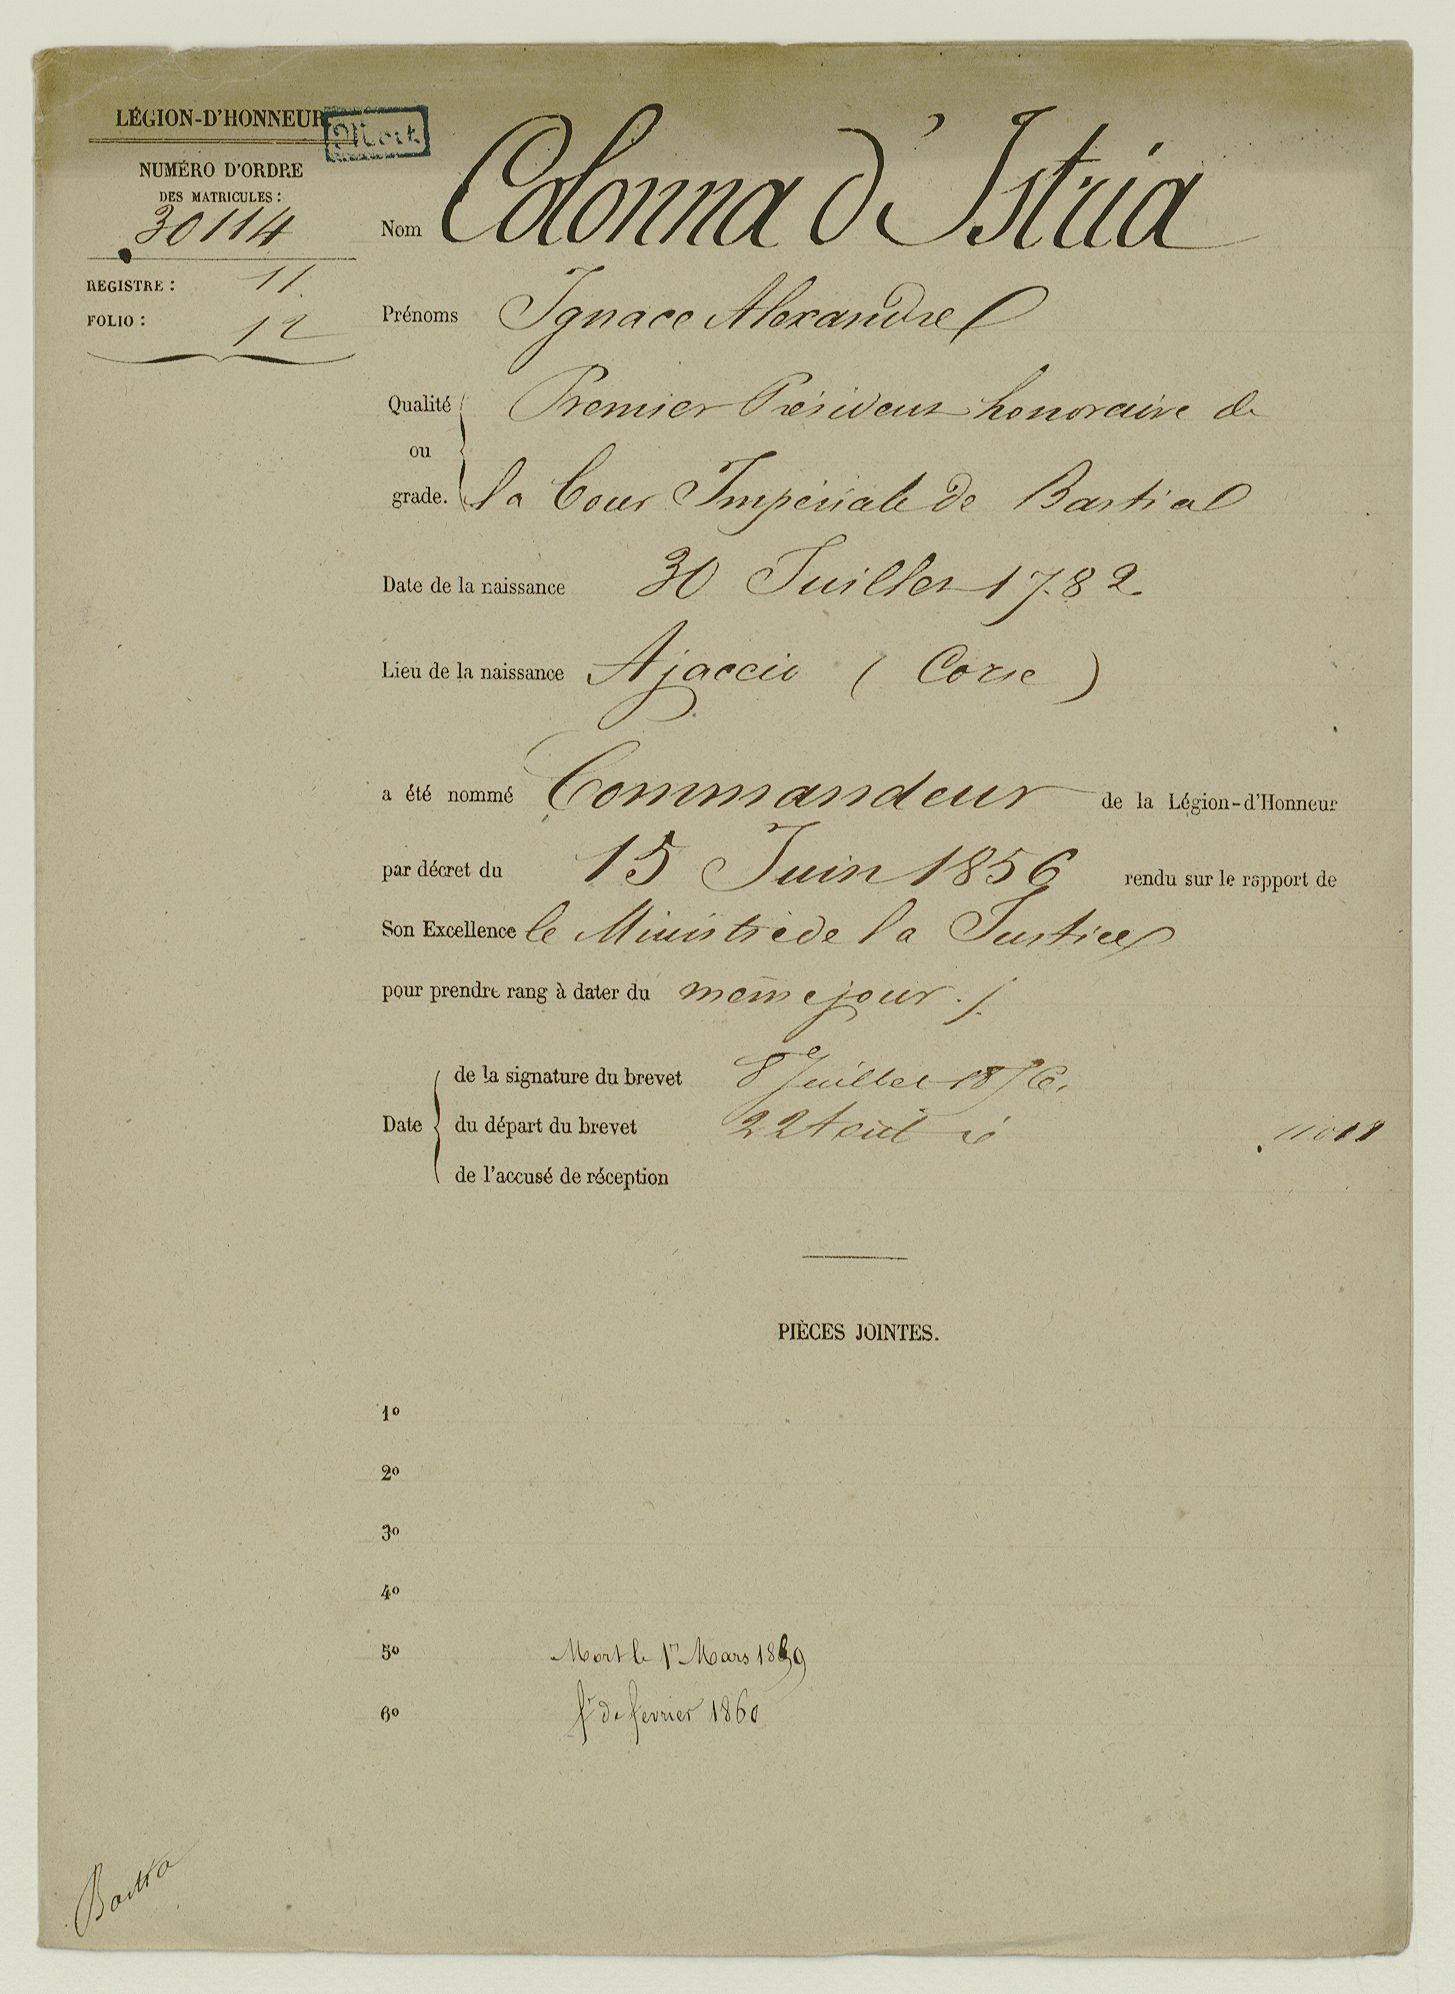 LÉGION-D'HONNEUR
Mort
NUMÉRO D'ORDRE
DES MATRICULES :
30114
REGISTRE : 11.
FOLIO : 12
Nom Colonna d'Istria
Prénoms Ignace Alexandre
Qualité ou grade. Premier Président honoraire de
la Cour Impériale de Bastia
Date de la naissance 30 Juillet 1782
Lieu de la naissance Ajaccio ( Corse )
a été nommé Commandeur de la Légion-d'Honneur
par décret du 15 Juin 1856 rendu sur le rapport de
Son Excellence le Ministre de la Justice
pour prendre rang à dater du même jour ./.
Date
de la signature du brevet 8 Juillet 1856.
du départ du brevet 22 Août
de l'accusé de réception
PIÈCES JOINTES.
1º
2º
3º
4º
5º Mort le 1er Mars 1859
6º fr de fevrier 1860
Bastia